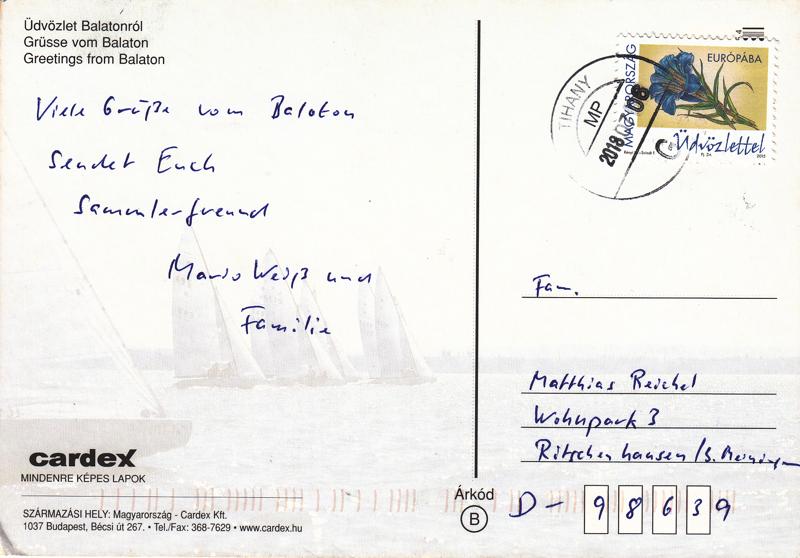 Üdvözlet Balatonról
Grüsse vom Balaton
Greetings from Balaton
Viele Grüße vom Balaton
Sendet Euch
Sammlerfreund
Mario Weiß und
Familie
cardex
MINDENRE KÉPES LAPOK
SZÁRMAZÁSI HELY: Magyarország - Cardex Kft.
1037 Budapest, Bécsi út 267. • Tel./Fax: 368-7629 • www.cardex.hu
MAGYARORSZÁG
EURÓPÁBA
Üdvözlettel
2015
TIHANY
MP
2018
Fam.
Matthias Reichel
Wohnpark 3
Ritschenhausen /b. Meiningen
Árkód
B
D - 98639